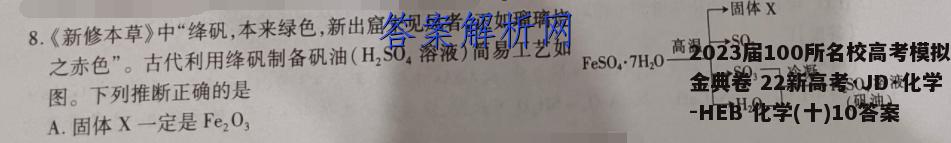 8.《新修本草》中“绛矾,本来绿色,新出窟
答案解析网
之赤色”。古代利用绛矾制备矾油(H₂SO₄ 溶液)简易工艺如
图。下列推断正确的是
A. 固体 X 一定是 Fe₂O₃
FeSO₄·7H₂O
高温
固体 X
2023届100所名校高考模拟
金典卷 22新高考 JD 化学
-HEB 化学(十)10答案